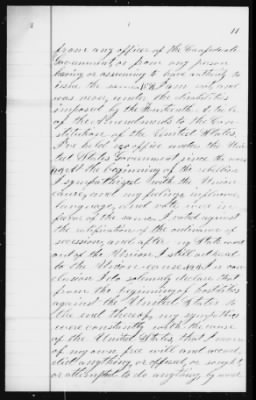 11
from any officer of the Confederate
Government, or from any person
having or assuming to have authority to
issue the same. I am not, and
was never, under the disabilities
imposed by the Fourteenth Article
of the Amendments to the Con-
stitution of the United States,
I've held no office under the Uni-
ted States Government since the war
At the beginning of the rebellion
I sympathized with the Union
cause, and my feelings, influence,
language, and vote were in
favor of the same. I voted against
the ratification of the ordinance of
secession, and after my State went
out of the Union I still adhered
to the Union cause. And in con-
clusion I do solemnly declare that
from the beginning of hostilities
against the United States to
the end thereof, my sympathies
were constantly with the cause
of the United States, that I never
of my own free will and accord,
did anything, or offered, or sought
or attempted to do anything, by word